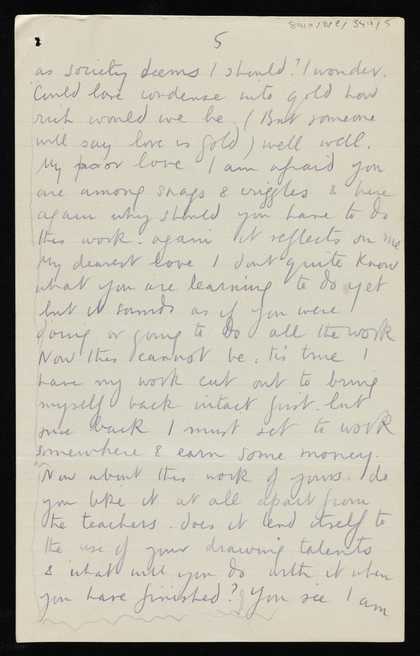 5
as society deems I should? I wonder.
Could love condense into gold how
rich would we be. (But someone
will say love is gold) well well.
My poor love I am afraid you
are among snags & wriggles & here
again why should you have to do
this work. again it reflects on me
My dearest love I dont quite know
what you are learning to do yet
but it sounds as if you were
doing or going to do all the work
Now this cannot be. tis true I
have my work cut out to bring
myself back intact first. but
once back I must set to work
somewhere & earn some money.
Now about this work of yours. do
you like it at all apart from
the teachers. does it lend itself to
the use of your drawing talents
& what will you do with it when
you have finished? You see I am